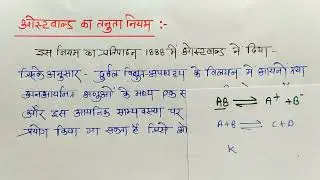 ओस्टवाल्ड का तनुता नियम :-
इस नियम का प्रतिपादन 1888 में ओस्टवाल्ड ने दिया
जिसके अनुसार - दुर्बल विद्युत-अपघट्य के विलयन में आयनों तथा
अनआयनित अणुओं के मध्य एक स
और इस आयनिक साम्यावस्था पर
प्रयोग किया जा सकता है जिसे
AB ⇌ A⁺ + B⁻
A+B ⇌ C+D
K